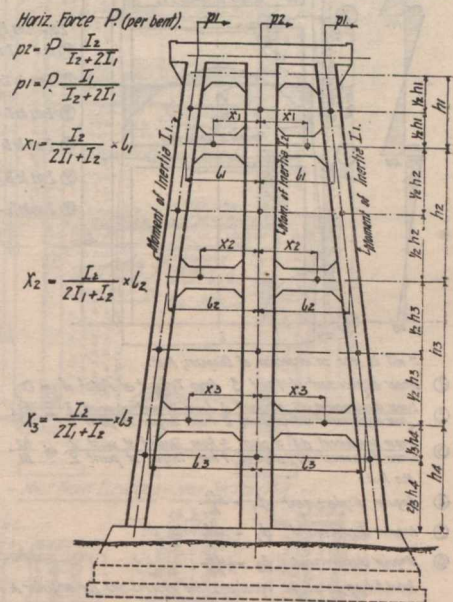 Horiz. Force P. (per bent).
p2 = P I2 / (I2+2I1)
p1 = P. I1 / (I2+2I1)
x1 = I2 / (2I1+I2) × l1
X2 = I2 / (2I1+I2) × l2
X3 = I2 / (2I1+I2) × l3
p1 p2 p1
x1 x1
l1 l1
Moment of Inertia I1.
Mom. of Inertia I2
Moment of Inertia I1.
x2 x2
l2 l2
x3 x3
l3 l3
½ h1
½ h1
h1
½ h2
½ h2
h2
½ h3
½ h3
h3
⅓ h4
⅔ h4
h4